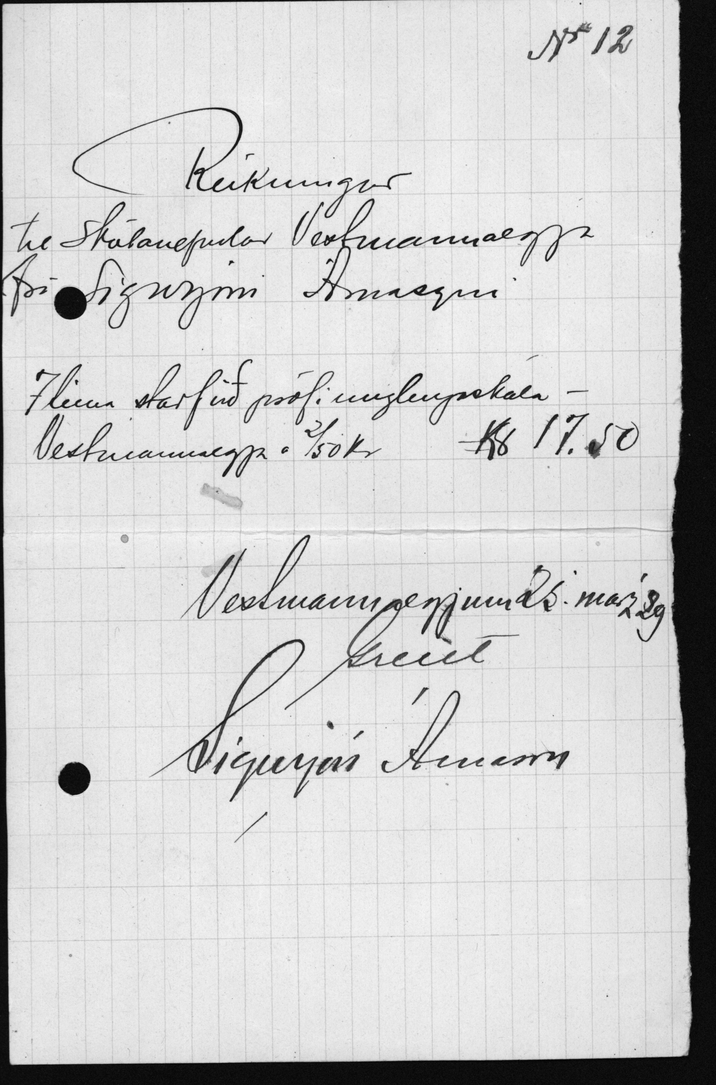 Nr 12
Reikningur
til Skólanefndar Vestmannaeyja
frá Sigurjóni Árnasyni
7 tíma starf við próf í unglingaskóla –
Vestmannaeyja á 2/50 kr Kr 17.50
Vestmannaeyjum 25. marz 29
Greitt
Sigurjón Árnason